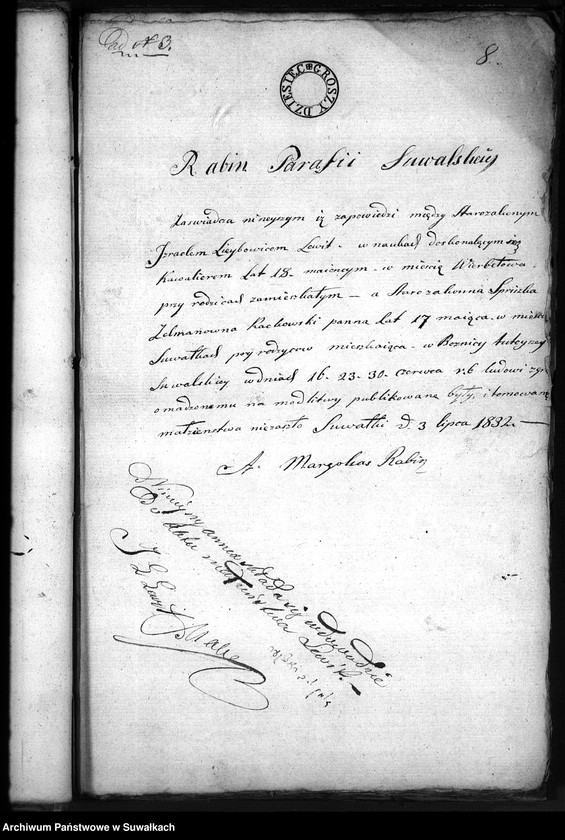 ad N 3.
8.
DZIESIEC GROSZY
Rabin Parafii Suwalskiey
Zaswiadcza ninieyszym iż zapowiedzi między Starozakonnym
Izraelem Leybowicem Lewit - w naukach doskonalącym się
Kawalerem lat 18. maiącym - w mieście Wierzbołowa
przy rodzicach zamieszkałym — a Starozakonna Sprinzka
Zelmanowna Rachowski panna lat 17 maiąca - w mieście
Suwałkach przy rodzicow mieszkaiąca - w Boznicy tuteyszey
Suwalskiey w dniach 16. 23. 30. czerwca r.b ludowi zgr
omadzonemu na modlitwy publikowane były, i tamowanie
małzenstwa niezaszło Suwałki d. 3 lipca 1832. —
A. Margolias Rabin
Ninieyszy annex składa się
Do Aktu małżeństwa Lewit. —